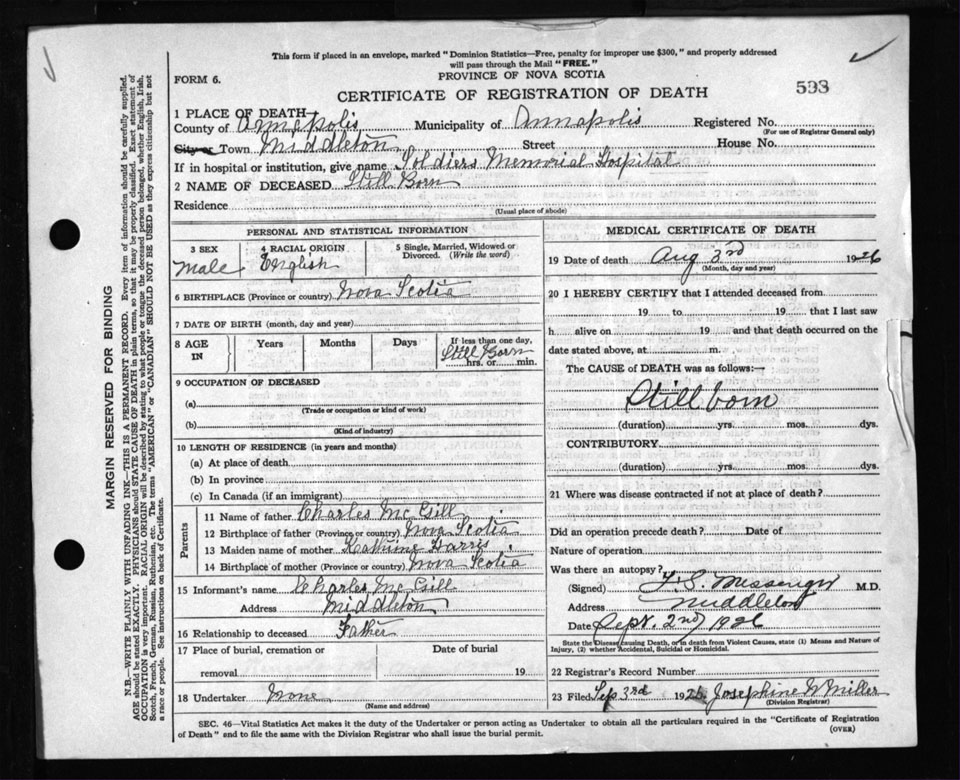 This form if placed in an envelope, marked "Dominion Statistics—Free, penalty for improper use $300," and properly addressed
will pass through the Mail "FREE."
FORM 6.
PROVINCE OF NOVA SCOTIA
593
CERTIFICATE OF REGISTRATION OF DEATH
1 PLACE OF DEATH—
County of Annapolis Municipality of Annapolis Registered No.
(For use of Registrar General only)
City or Town Middleton Street House No.
If in hospital or institution, give name Soldiers Memorial Hospital
2 NAME OF DECEASED Still Born
Residence
(Usual place of abode)
PERSONAL AND STATISTICAL INFORMATION
3 SEX 4 RACIAL ORIGIN 5 Single, Married, Widowed or
Divorced. (Write the word)
Male English
6 BIRTHPLACE (Province or country) Nova Scotia
7 DATE OF BIRTH (month, day and year)
8 AGE IN Years Months Days If less than one day,
Still Born
hrs. or min.
9 OCCUPATION OF DECEASED
(a)
(Trade or occupation or kind of work)
(b)
(Kind of industry)
10 LENGTH OF RESIDENCE (in years and months)
(a) At place of death
(b) In province
(c) In Canada (if an immigrant)
Parents
11 Name of father Charles McGill
12 Birthplace of father (Province or country) Nova Scotia
13 Maiden name of mother Harris
14 Birthplace of mother (Province or country) Nova Scotia
15 Informant's name Charles McGill
Address Middleton
16 Relationship to deceased Father
17 Place of burial, cremation or Date of burial
removal 19
18 Undertaker None
(Name and address)
MEDICAL CERTIFICATE OF DEATH
19 Date of death Aug 3rd 1926
(Month, day and year)
20 I HEREBY CERTIFY that I attended deceased from
19 to 19 that I last saw
h alive on 19 and that death occurred on the
date stated above, at m.
The CAUSE of DEATH was as follows:—
Still born
(duration) yrs. mos. dys.
CONTRIBUTORY
(duration) yrs. mos. dys.
21 Where was disease contracted if not at place of death?
Did an operation precede death? Date of
Nature of operation
Was there an autopsy?
(Signed) Messenger M.D.
Address Middleton
Date Sept. 2nd 1926
State the Disease causing Death, or in death from Violent Causes, state (1) Means and Nature of
Injury, (2) whether Accidental, Suicidal or Homicidal.
22 Registrar's Record Number
23 Filed Sep 3rd 1926 Josephine Miller
(Division Registrar)
SEC. 46—Vital Statistics Act makes it the duty of the Undertaker or person acting as Undertaker to obtain all the particulars required in the "Certificate of Registration
of Death" and to file the same with the Division Registrar who shall issue the burial permit.
(OVER)
MARGIN RESERVED FOR BINDING
N.B.—WRITE PLAINLY WITH UNFADING INK—THIS IS A PERMANENT RECORD. Every item of information should be carefully supplied.
AGE should be stated EXACTLY. PHYSICIANS should STATE CAUSE OF DEATH in plain terms, so that it may be properly classified. Exact statement of
OCCUPATION is very important. RACIAL ORIGIN will be described by stating to what people or tongue the deceased person belonged, whether English, Irish,
Scotch, French, German, Russian, Ruthenian, etc. The terms "AMERICAN" or "CANADIAN" SHOULD NOT BE USED as they express citizenship but not
a race or people. See instructions on back of Certificate.